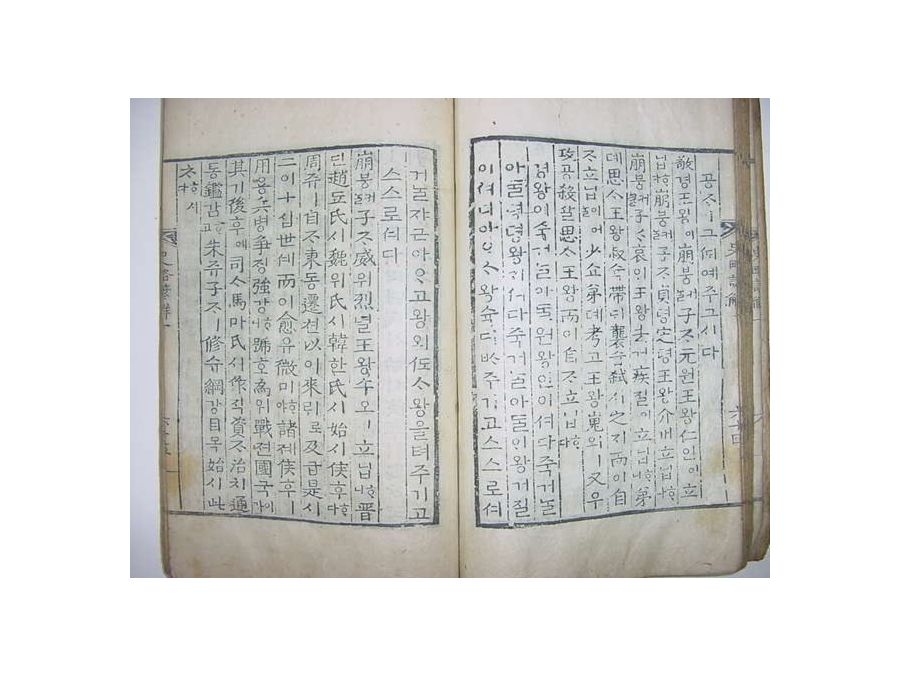 공ᄌᆞㅣ그ᄒᆡ예주그시다
敬경王왕이崩붕커ᄂᆞᆯ子ᄌᆞ元원王왕仁인이立
닙ᄒᆞ야崩붕커ᄂᆞᆯ子ᄌᆞ貞뎡定뎡王왕介개立닙ᄒᆞ야
崩붕커ᄂᆞᆯ子ᄌᆞ哀ᄋᆡ王왕去거疾질이立닙ᄒᆞ니弟
뎨思ᄉᆞ王왕叔슉帶ᄃᆡ襲습弑시之지而이自
ᄌᆞ立닙이어ᄂᆞᆯ少쇼弟뎨考고王왕嵬외ㅣ又우
攻공殺살思ᄉᆞ王왕而이自ᄌᆞ立닙ᄒᆞ다
경왕이죽거ᄂᆞᆯ아ᄃᆞᆯ원왕인이셔다죽거ᄂᆞᆯ
아ᄃᆞᆯ뎡뎡왕개셔다죽거ᄂᆞᆯ아ᄃᆞᆯᄋᆡ왕거질
이셔니아ᄋᆞᄉᆞ왕슉ᄃᆡ주기고스스로셔
거ᄂᆞᆯ쟈근아ᄋᆞ고왕외ㅣᄉᆞ왕을텨주기고
스스로셔다
崩붕커ᄂᆞᆯ子ᄌᆞ威위烈렬王왕午오ㅣ立닙ᄒᆞ니晋
진趙됴氏시魏위氏시韓한氏시始시侯후ᄒᆞ다
周쥬ㅣ自ᄌᆞ東동遷쳔以이來ᄅᆡ로及급是시
二이十십世셰而이愈유微미ᄒᆞ야諸졔侯후ㅣ
用용兵병爭ᄌᆡᆼ强강ᄒᆞ니號호爲위戰젼國국이라
其기後후에司ᄉᆞ馬마氏시作작資ᄌᆞ治치通
통鑑감과朱쥬子ᄌᆞㅣ修슈綱강目목始시此
ᄎᆞᄒᆞ시
史略諺解 一